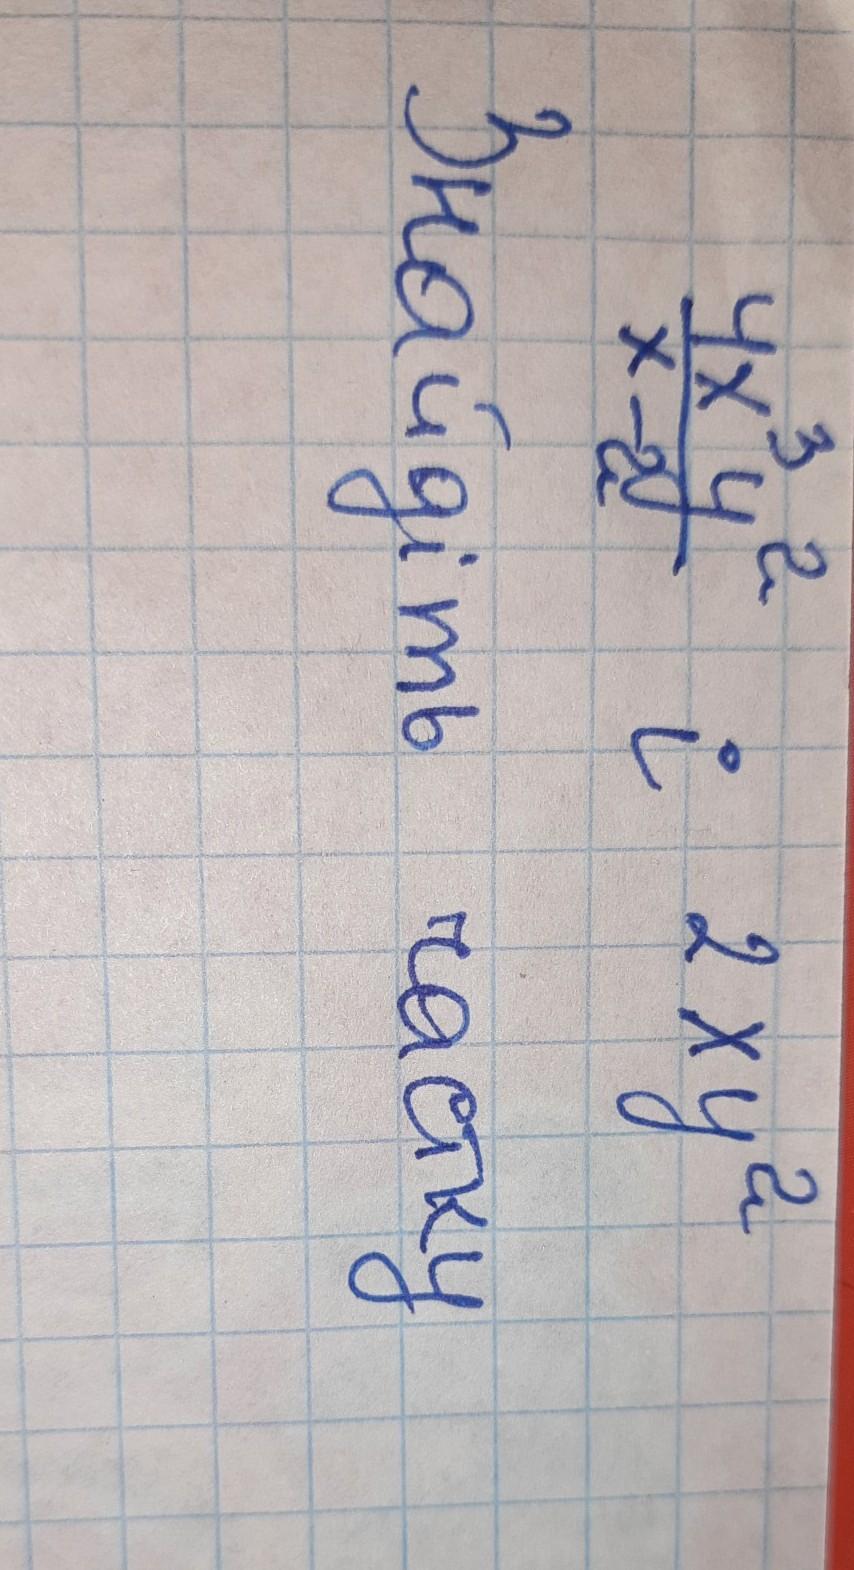 4x³y² / x-2 і 2xy²
Знайдіть частку